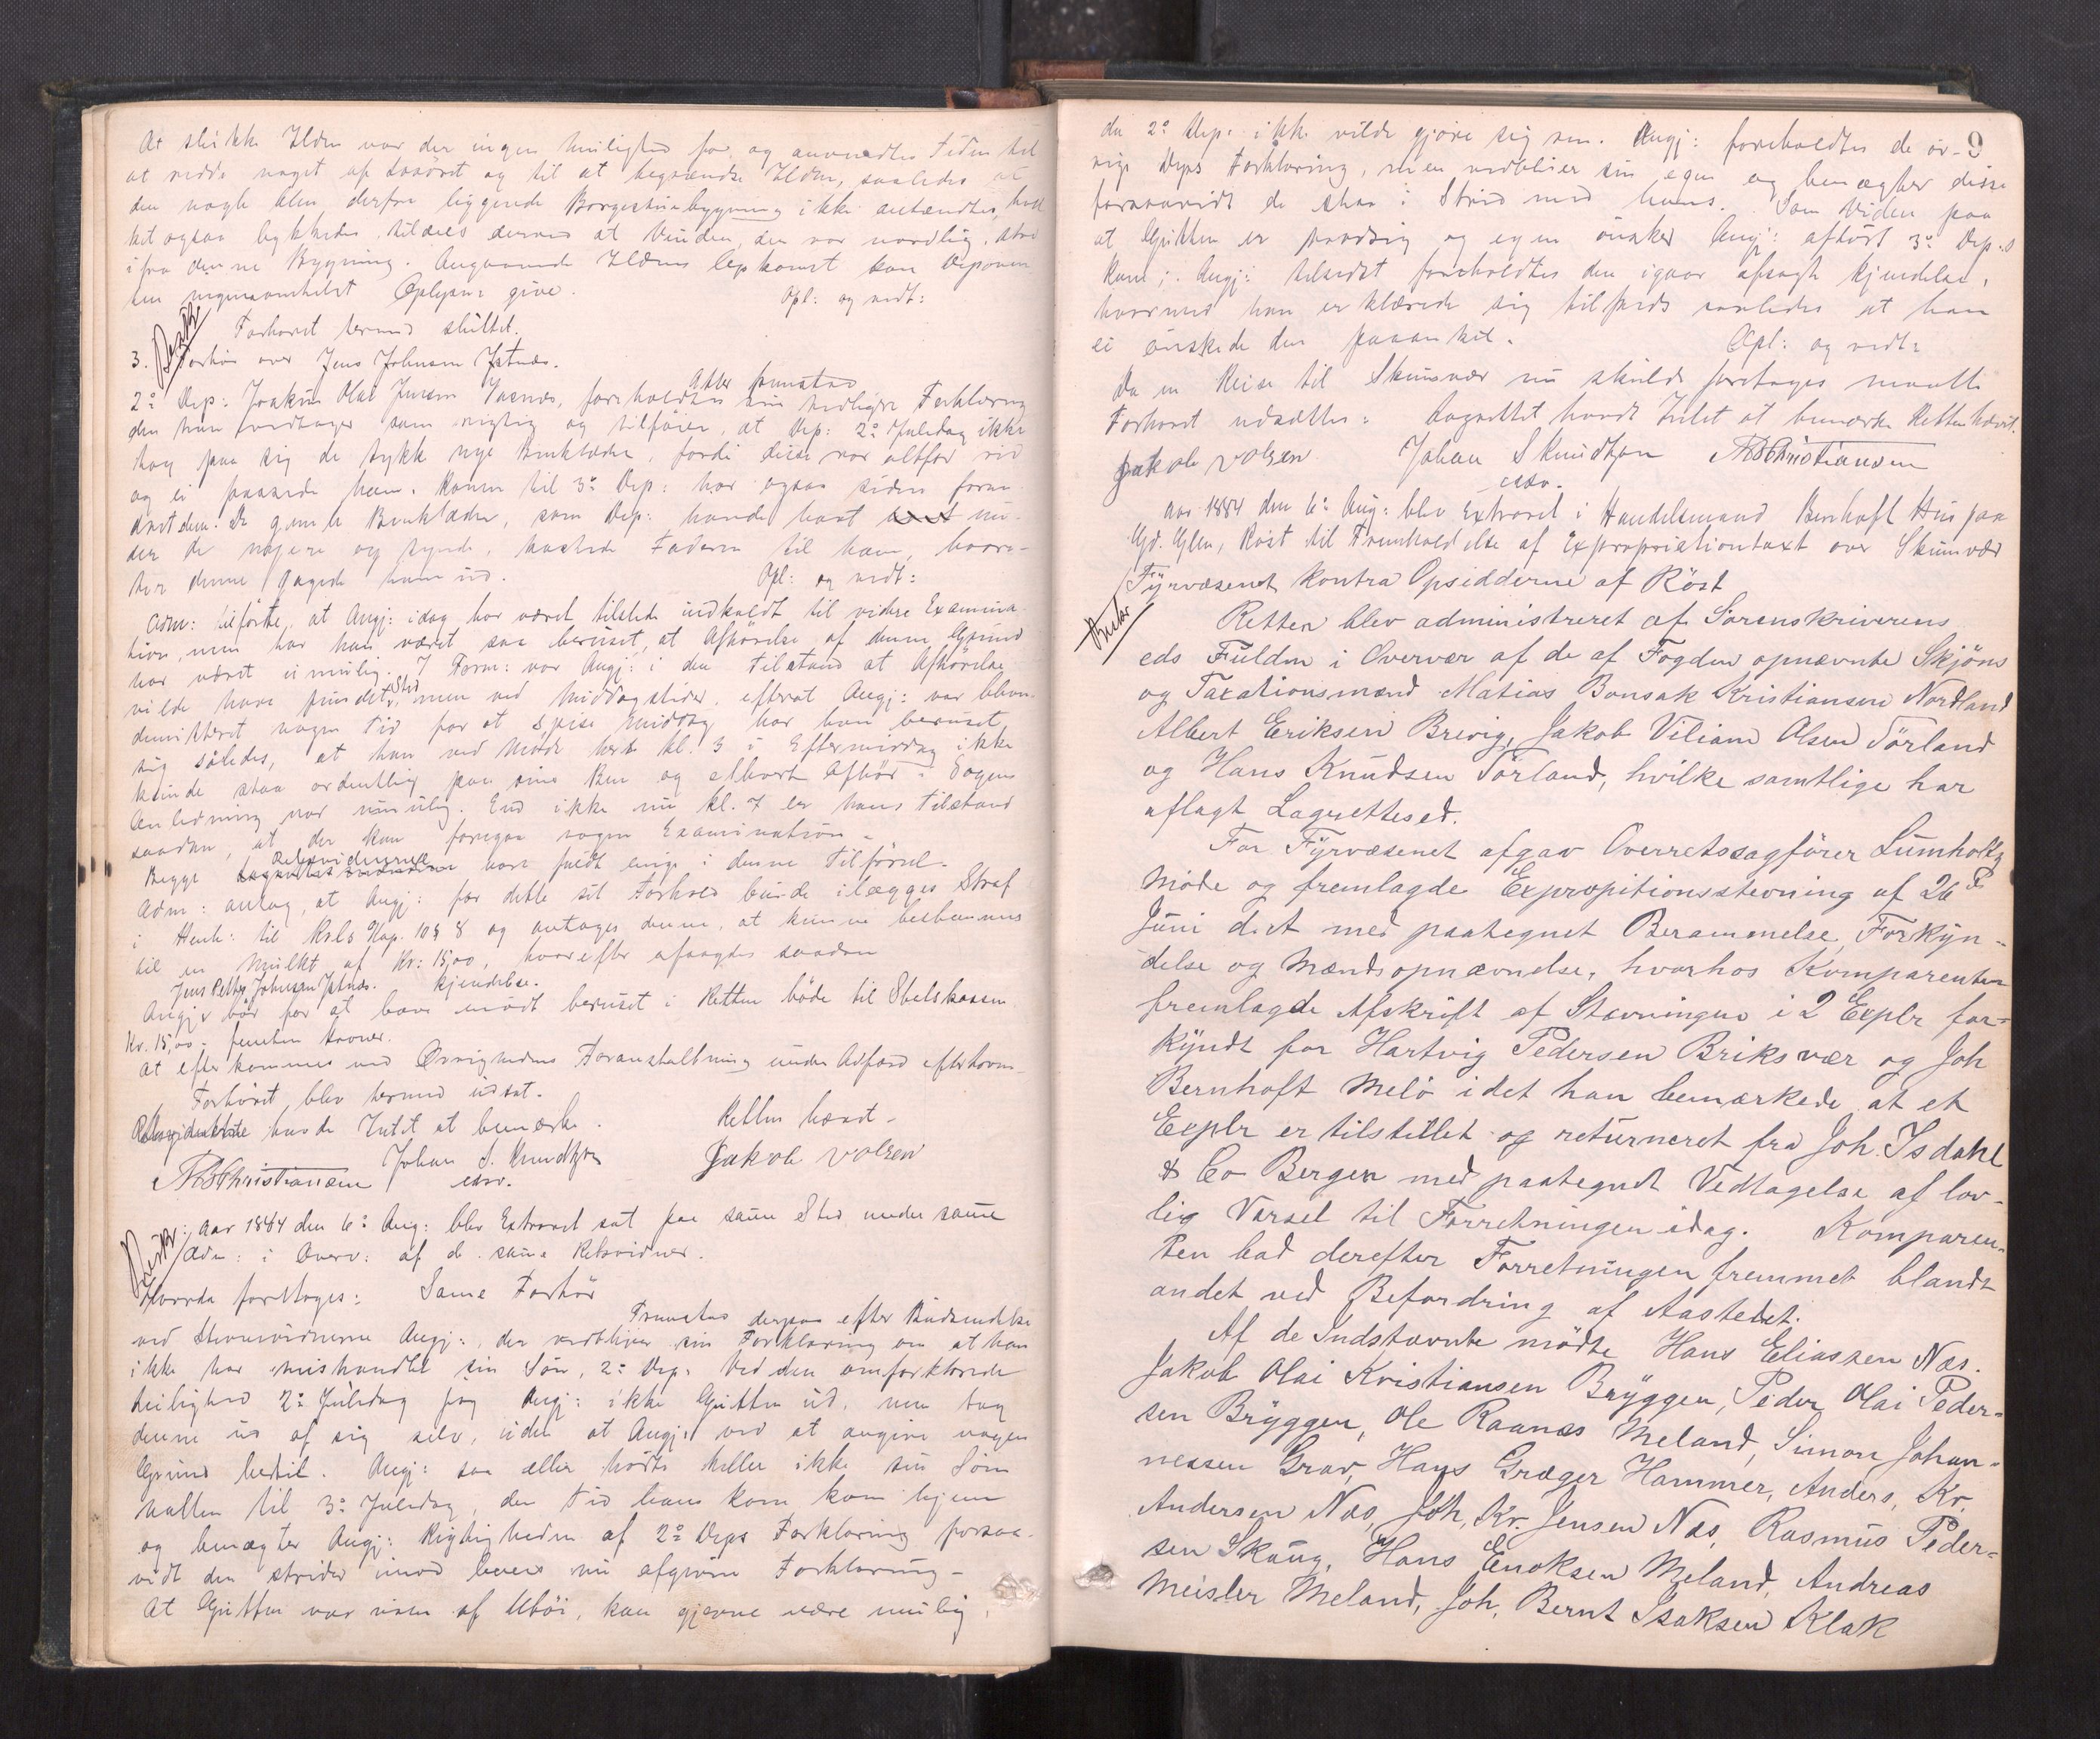 At slukke Ilden var der ingen Mulighed for, og anvendtes Tiden til
at redde noget af Løsøret og til at begrændse Ilden, saaledes at
den nogle Alen derfra liggende Borgestuebygning ikke antændtes, hvil
ket ogsaa lykkedes tildels derved at Vinden, der var nordlig, stod
ifra denne Bygning. Angaaende Ildens Opkomst kan Deponen
ten ingensomhelst Oplysn: give. Opl: og vedt:
Forhøret hermed sluttet.
3. Forhør over Jens Johnsen Istnæs.
Atter fremstod
2den Dep: Joakim Olai Jensen Vasnæs, foreholdtes sin tidligere Forklaring
den han vedtager som rigtig og tilføier, at Dep: 2den Juledag ikke
tog paa sig de tykke nye Buxklæder, fordi disse var altfor vid
og ei passede ham. Konen til 3die Dep: har ogsaa siden foran
dret dem. De gamle Benklæder, som Dep: havde havt un-
der de nyere og tynde, kastede Faderen til ham, hvor-
efter denne jagede ham ud. Opl: og vedt:
Adm: tilførte, at Angj: idag har været tilstede indkaldt til videre Examina-
tion, men har han været saa beruset, at Afhørelse af denne Grund
har været umulig. I Form: var Angj: i den Tilstand at Afhørelse
vilde have fundet Sted, men ved Middagstider, efterat Angj: var bleven
demitteret nogen Tid for at spise Middag har han beruset
sig således, at han ved Møde herte kl. 3 i Eftermiddag ikke
kunde staa ordentlig paa sine Ben og ethvert Afhør i Sagens
Anledning var umulig. End ikke nu kl. 7 er hans Tilstand
saadan, at der kan foregaa nogen Examination.
Begge Retsvidnerne vare fuldt enige i denne Tilførsel.
Adm: antog, at Angj: for dette sit Forhold burde ilægges Straf
i Henh: til Krls Kap. 10 § 8 og antages denne, at kunne bestemmes
til en Mulkt af Kr: 15,00, hvorefter afsagdes saadan
Kjendelse.
Jens Petter Johnsen Istnæs.
Angj: bør for at have mødt beruset i Retten bøde til Statskassen
Kr. 15,00 - femten Kroner.
At efterkommes ved Øvrighedens Foranstaltning under Adfærd efter Loven
Forhøret blev hermed udsat.
Retsvidnerne havde Intet at bemærke. Retten hævet.
ABChristiansen Johan S. Knudtzon Jakob Volsen
const.
Aar 1884 den 6te Aug: blev Extraret sat paa samme Sted under samme
Adm: i Overv: af de samme Retsvidner.
Hvorda foretoges: Samme Forhør
Fremstod derpaa efter Budsendelse
ved Stevnevidnerne Angj:, der vedbliver sin Forklaring om at han
ikke har mishandlet sin Søn, 2den Dep: Ved den omforklarede
Leilighed 2den Juledag jog Angj: ikke Gutten ud, men tog
denne ud af sig selv, uden at Angj: ved at angive nogen
Grund hertil. Angj: saa eller hørte heller ikke sin Søn
Natten til 3die Juledag, den Tid hans Kone kom hjem
og benægter Angj: Rigtigheden af 2den Deps Forklaring forsaa-
vidt den strider imod hans nu afgivne Forklaring.
At Gutten var uren af Utøi, kan gjerne være mulig,
9
da 2den Dep: ikke vilde gjøre sig ren. Angj: foreholdtes de øv-
rige Deps Forklaring, men vedbliver sin egen og benægter disse
forsaavidt de staa i Strid med hans. Som Viden paa
at Gutten er paastaaelig og egen ønsker Angj: afhørt 3die Dep.s
Kone. Angj: tilsidst foreholdtes den igaar afsagte Kjendelse,
hvormed han erklærede sig tilfreds saaledes at han
ei ønskede den paaanket. Opl: og vedt:
Da en Reise til Skumvær nu skulde foretages maatte
Forhøret udsættes: Lagrettet havde Intet at bemærke Retten hævet.
Jakob Volsen Johan S Knudtzon ABChristiansen
const.
Aar 1884 den 6te Aug: blev Extraret i Handelsmand Benhoft Hus paa
Gd. Glea, Røst til Fremholdelse af Expropriationstaxt over Skumvær
Fyrvæsenet kontra Opsidderne af Röst
Retten blev administreret af Sorenskriverens
eds Fuldm i Overvær af de af Fogden opnævnte Skjöns
og Taxationsmænd Matias Bonsak Kristiansen Nordland
Albert Eriksen Brevig, Jakob Viliam Olsen Törland
og Hans Knudsen Törland, hvilke samtlige har
aflagt Lagrettesed.
For Fyrvæsenet afgav Overretssagförer Lumholtz
Möde og fremlagde Expropitionsstevning af 26de
Juni d.A med paategnet Berammelse, Forkyn-
delse og Mændsopnævnelse, hvorhos Komparenten
fremlagde Afskrift af Stævningen i 2 Explr for-
kyndt for Hartvig Pedersen Briksvær og Joh
Bernhoft Melö idet han bemærkede at et
Explr er tilstillet og returneret fra Joh. Isdahl
& Co Bergen med paategnet Vedtagelse af lov-
lig Varsel til Forretningen idag. Komparen-
ten bad derefter Forretningen fremmet blandt
andet ved Befordring af Aastedet.
Af de Indstævnte mödte Hans Eliassen Næs.
Jakob Olai Kristiansen Bryggen, Peder Olai Peder-
sen Bryggen, Ole Raanæs Meland, Simon Johan-
nessen Grav, Hans Græger Hammer, Anders, Kr.
Andersen Næs, Joh, Kr. Jensen Næs, Rasmus Peder-
sen Skaug, Hans Enoksen Meland, Andreas
Meisler Meland, Joh, Bernt Isaksen Klak